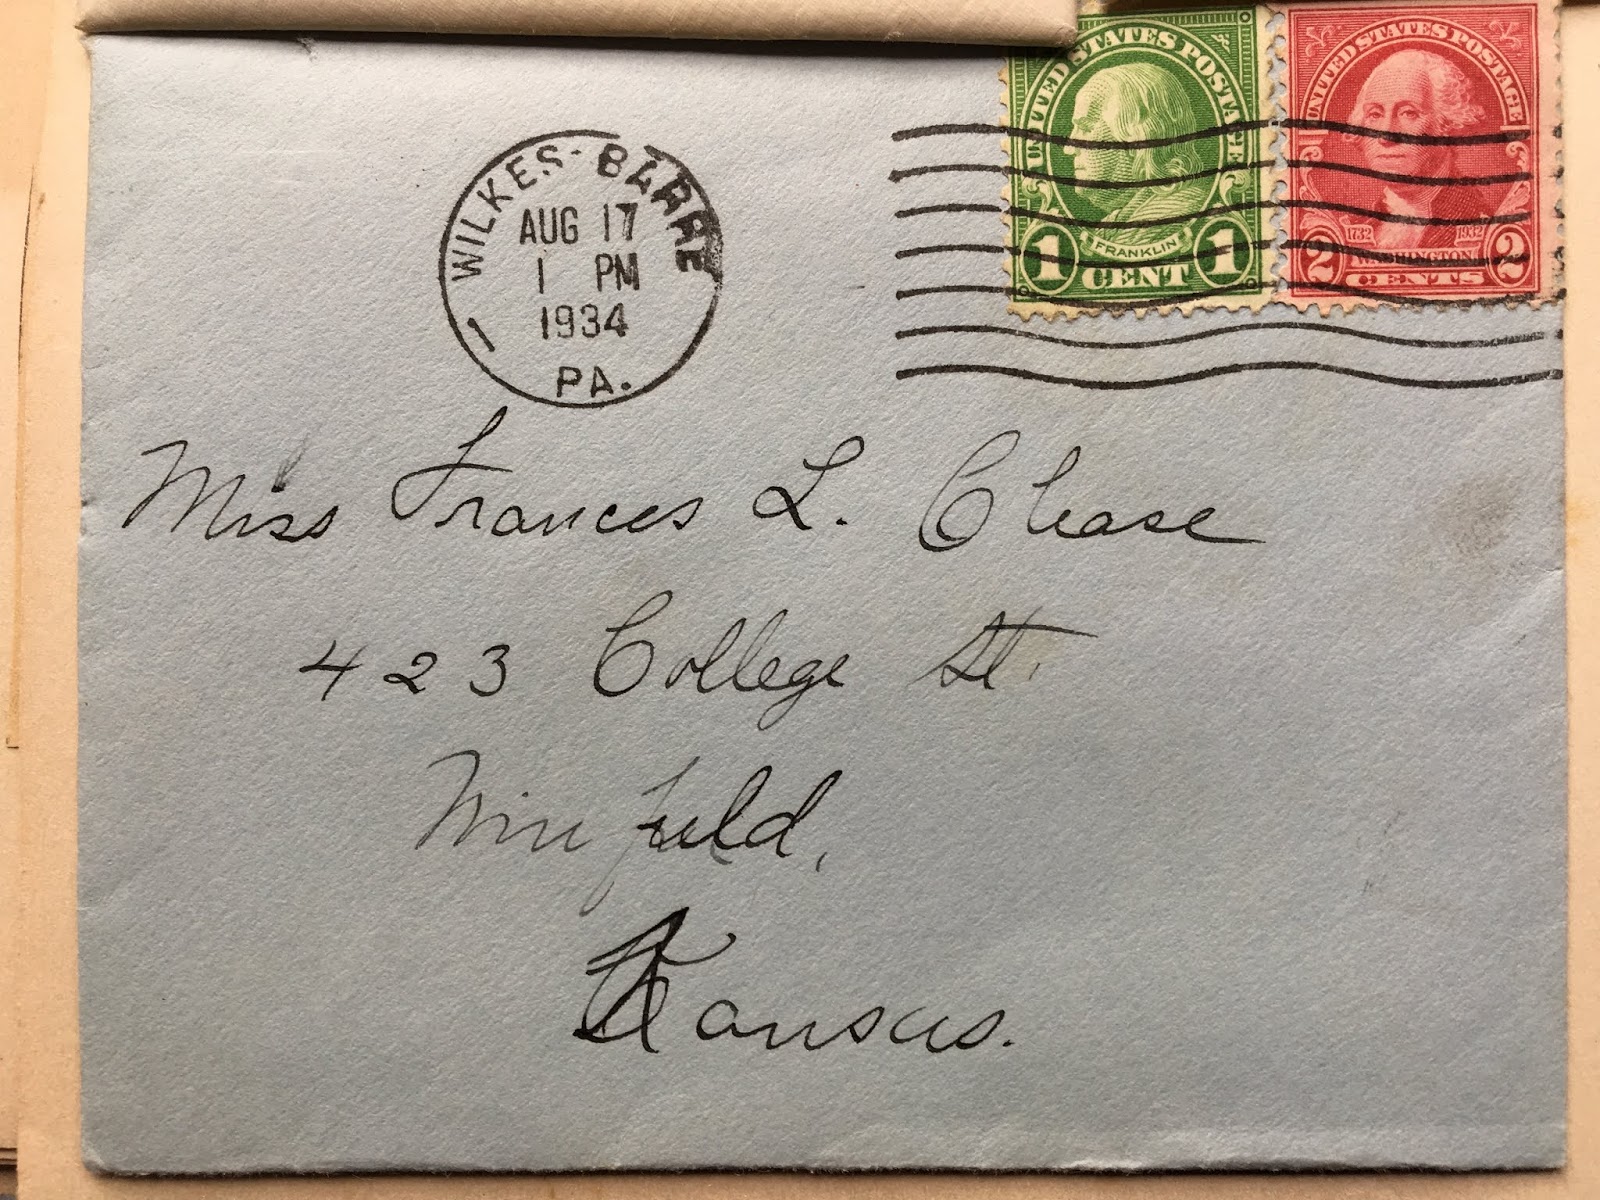 WILKES-BARRE
AUG 17
1 PM
1934
1
PA.
UNITED STATES POSTAGE
FRANKLIN
1 CENT 1
UNITED STATES POSTAGE
1732 1932
WASHINGTON
2 CENTS 2
Miss Frances L. Chase
423 College St.
Winfield,
Kansas.